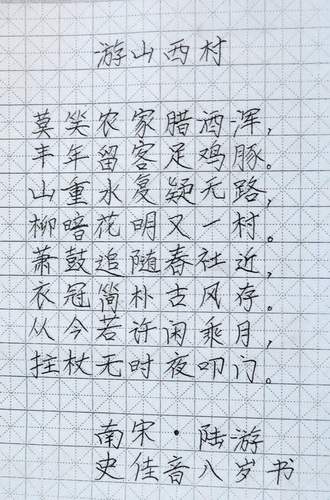 游山西村
莫笑农家腊酒浑，
丰年留客足鸡豚。
山重水复疑无路，
柳暗花明又一村。
萧鼓追随春社近，
衣冠简朴古风存。
从今若许闲乘月，
拄杖无时夜叩门。
南宋·陆游
史佳音八岁书